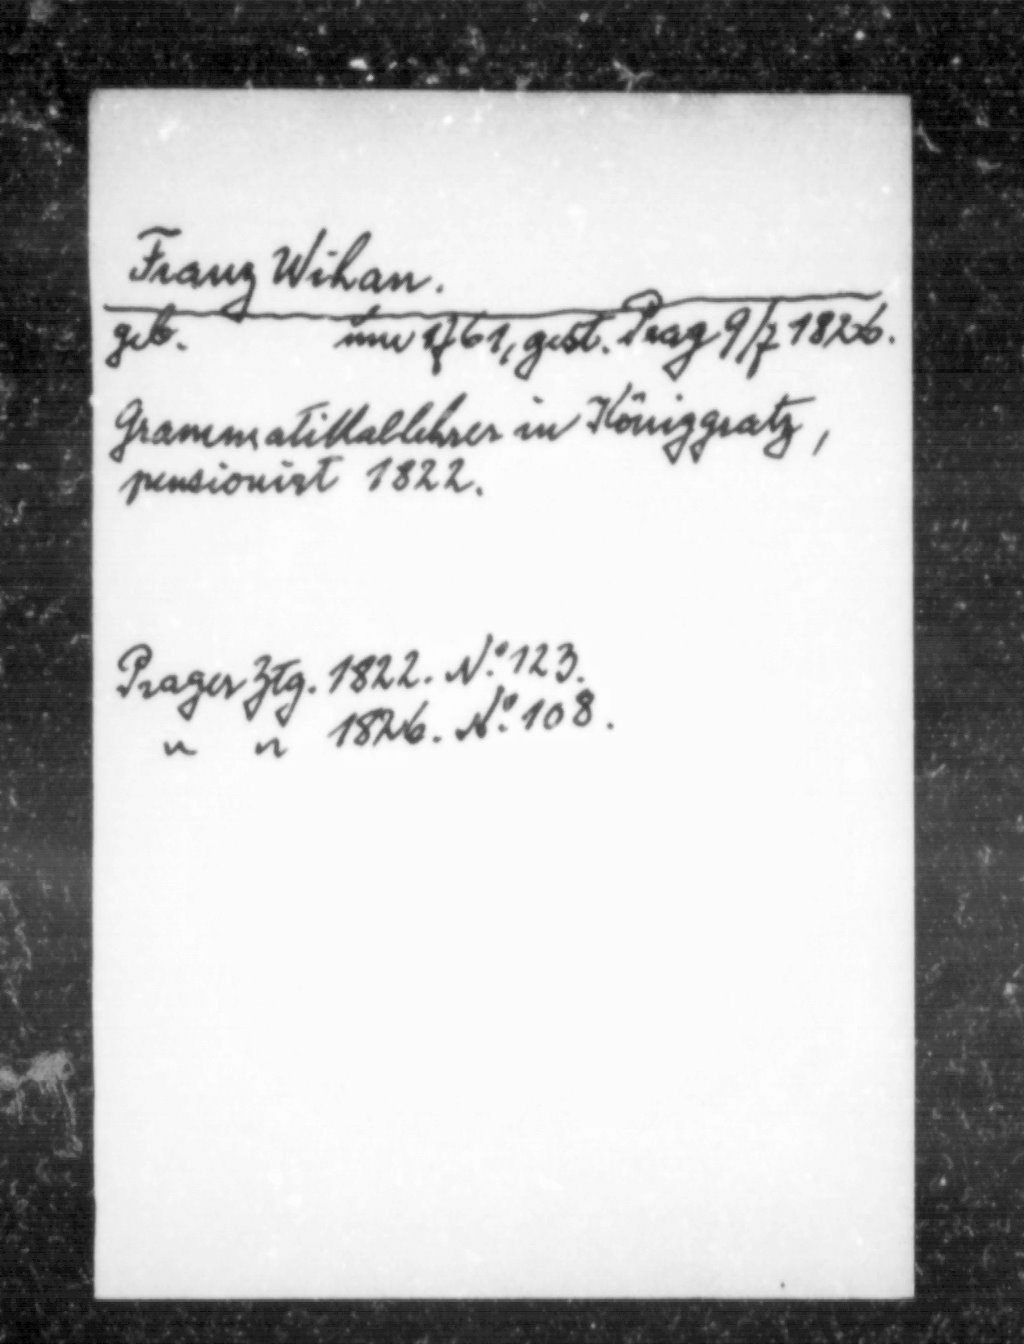 Franz Wihan.
geb. um 1761, gest. Prag 9/7 1826.
Grammatikallehrer in Königgratz,
pensionirt 1822.
Prager Ztg. 1822. No. 123.
" " 1826. No. 108.